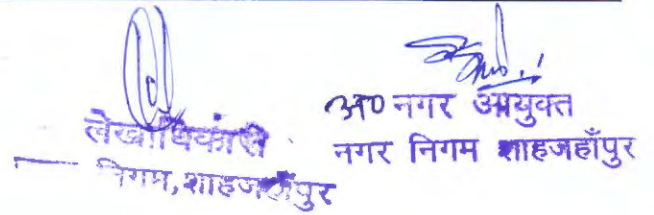 लेखाधिकारी
निगम, शाहजहाँपुर
अ० नगर आयुक्त
नगर निगम शाहजहाँपुर